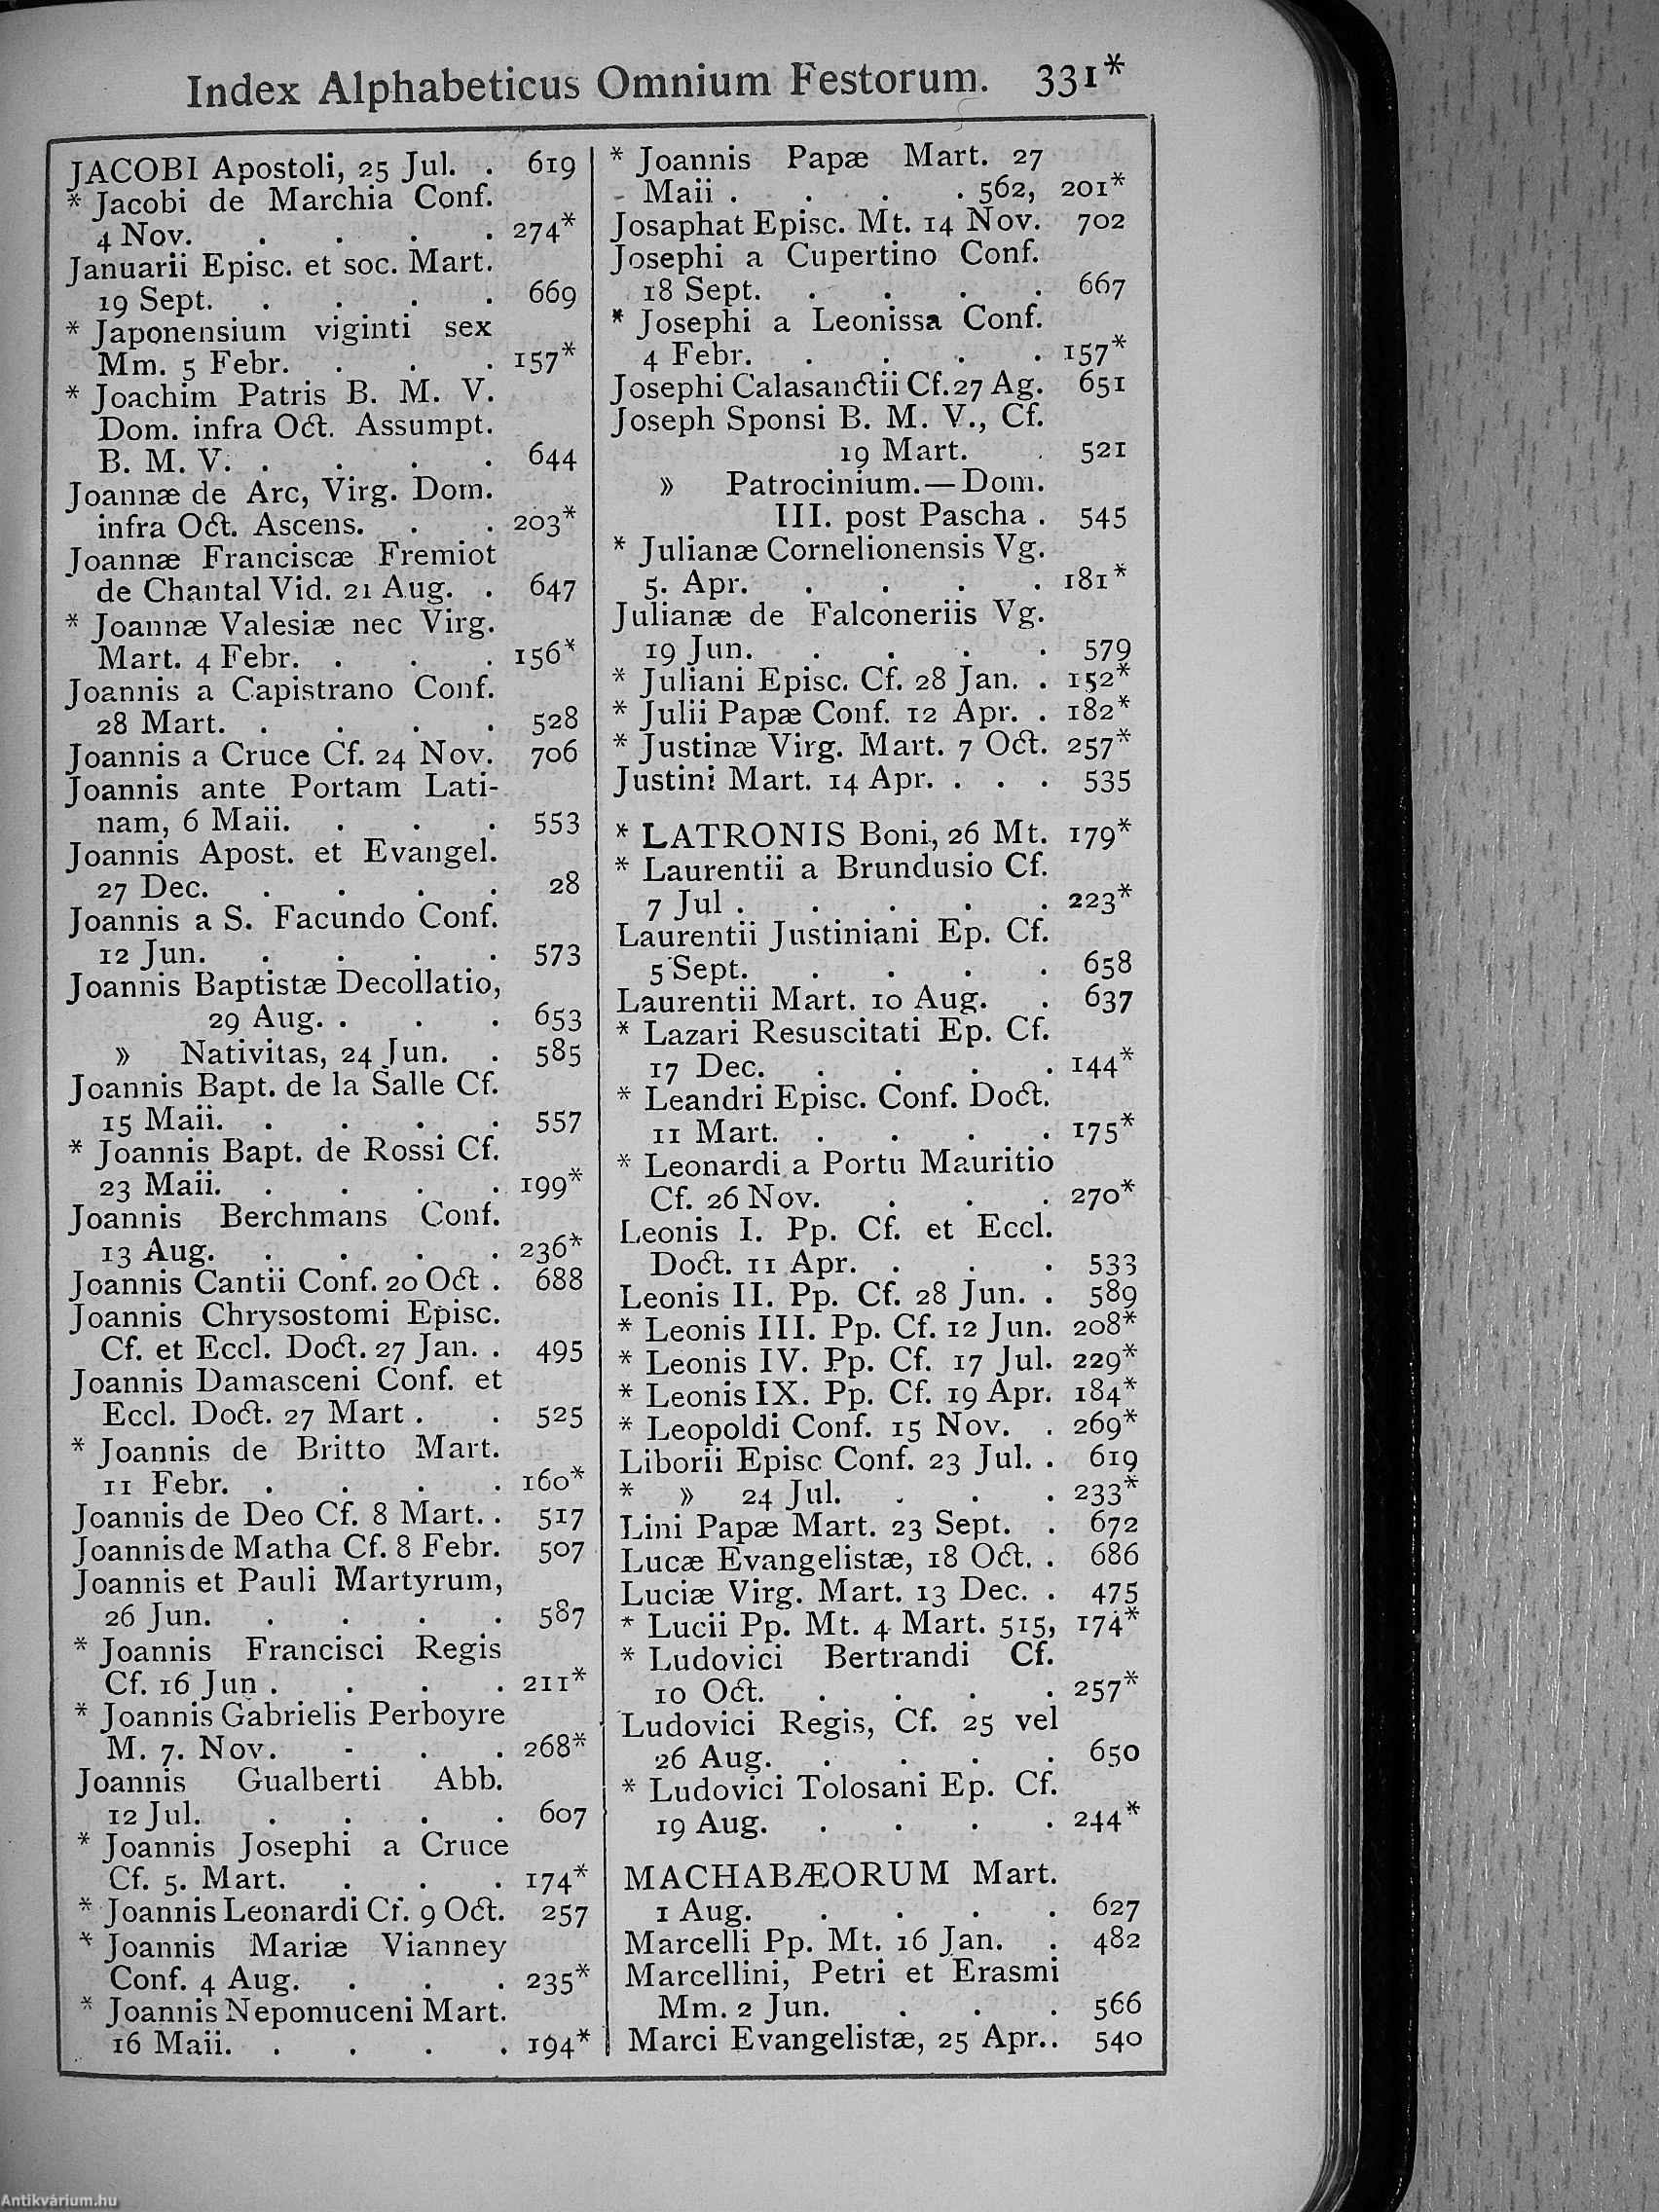 Index Alphabeticus Omnium Festorum. 331*
JACOBI Apostoli, 25 Jul. . 619
* Jacobi de Marchia Conf.
4 Nov. . . . . 274*
Januarii Episc. et soc. Mart.
19 Sept. . . . . 669
* Japonensium viginti sex
Mm. 5 Febr. . . . 157*
* Joachim Patris B. M. V.
Dom. infra Oct. Assumpt.
B. M. V. . . . . 644
Joannæ de Arc, Virg. Dom.
infra Oct. Ascens. . . 203*
Joannæ Franciscæ Fremiot
de Chantal Vid. 21 Aug. . 647
* Joannæ Valesiæ nec Virg.
Mart. 4 Febr. . . . 156*
Joannis a Capistrano Conf.
28 Mart. . . . . 528
Joannis a Cruce Cf. 24 Nov. 706
Joannis ante Portam Lati-
nam, 6 Maii. . . . 553
Joannis Apost. et Evangel.
27 Dec. . . . . 28
Joannis a S. Facundo Conf.
12 Jun. . . . . 573
Joannis Baptistæ Decollatio,
29 Aug. . . . 653
» Nativitas, 24 Jun. . 585
Joannis Bapt. de la Salle Cf.
15 Maii. . . . . 557
* Joannis Bapt. de Rossi Cf.
23 Maii. . . . . 199*
Joannis Berchmans Conf.
13 Aug. . . . . 236*
Joannis Cantii Conf. 20 Oct . 688
Joannis Chrysostomi Episc.
Cf. et Eccl. Doct. 27 Jan. . 495
Joannis Damasceni Conf. et
Eccl. Doct. 27 Mart . . 525
* Joannis de Britto Mart.
11 Febr. . . . . 160*
Joannis de Deo Cf. 8 Mart. . 517
Joannis de Matha Cf. 8 Febr. 507
Joannis et Pauli Martyrum,
26 Jun. . . . . 587
* Joannis Francisci Regis
Cf. 16 Jun . . . . 211*
* Joannis Gabrielis Perboyre
M. 7. Nov. - . . 268*
Joannis Gualberti Abb.
12 Jul. . . . . 607
* Joannis Josephi a Cruce
Cf. 5. Mart. . . . 174*
* Joannis Leonardi Cf. 9 Oct. 257
* Joannis Mariæ Vianney
Conf. 4 Aug. . . . 235*
* Joannis Nepomuceni Mart.
16 Maii. . . . . 194*
* Joannis Papæ Mart. 27
- Maii . . . . 562, 201*
Josaphat Episc. Mt. 14 Nov. 702
Josephi a Cupertino Conf.
18 Sept. . . . . 667
* Josephi a Leonissa Conf.
4 Febr. . . . . 157*
Josephi Calasanctii Cf. 27 Ag. 651
Joseph Sponsi B. M. V., Cf.
19 Mart. . 521
» Patrocinium.—Dom.
III. post Pascha . 545
* Julianæ Cornelionensis Vg.
5. Apr. . . . . 181*
Julianæ de Falconeriis Vg.
19 Jun. . . . . 579
* Juliani Episc. Cf. 28 Jan. . 152*
* Julii Papæ Conf. 12 Apr. . 182*
* Justinæ Virg. Mart. 7 Oct. 257*
Justini Mart. 14 Apr. . . . 535
* LATRONIS Boni, 26 Mt. 179*
* Laurentii a Brundusio Cf.
7 Jul . . . . . 223*
Laurentii Justiniani Ep. Cf.
5 Sept. . . . . 658
Laurentii Mart. 10 Aug. . 637
* Lazari Resuscitati Ep. Cf.
17 Dec. . . . . 144*
* Leandri Episc. Conf. Doct.
11 Mart. . . . . 175*
* Leonardi a Portu Mauritio
Cf. 26 Nov. . . . 270*
Leonis I. Pp. Cf. et Eccl.
Doct. 11 Apr. . . . 533
Leonis II. Pp. Cf. 28 Jun. . 589
* Leonis III. Pp. Cf. 12 Jun. 208*
* Leonis IV. Pp. Cf. 17 Jul. 229*
* Leonis IX. Pp. Cf. 19 Apr. 184*
* Leopoldi Conf. 15 Nov. . 269*
Liborii Episc Conf. 23 Jul. . 619
* » 24 Jul. . . . 233*
Lini Papæ Mart. 23 Sept. . 672
Lucæ Evangelistæ, 18 Oct. . 686
Luciæ Virg. Mart. 13 Dec. . 475
* Lucii Pp. Mt. 4 Mart. 515, 174*
* Ludovici Bertrandi Cf.
10 Oct. . . . . 257*
Ludovici Regis, Cf. 25 vel
26 Aug. . . . . 650
* Ludovici Tolosani Ep. Cf.
19 Aug. . . . . 244*
MACHABÆORUM Mart.
1 Aug. . . . . 627
Marcelli Pp. Mt. 16 Jan. . 482
Marcellini, Petri et Erasmi
Mm. 2 Jun. . . . 566
Marci Evangelistæ, 25 Apr.. 540
Antikvárium.hu